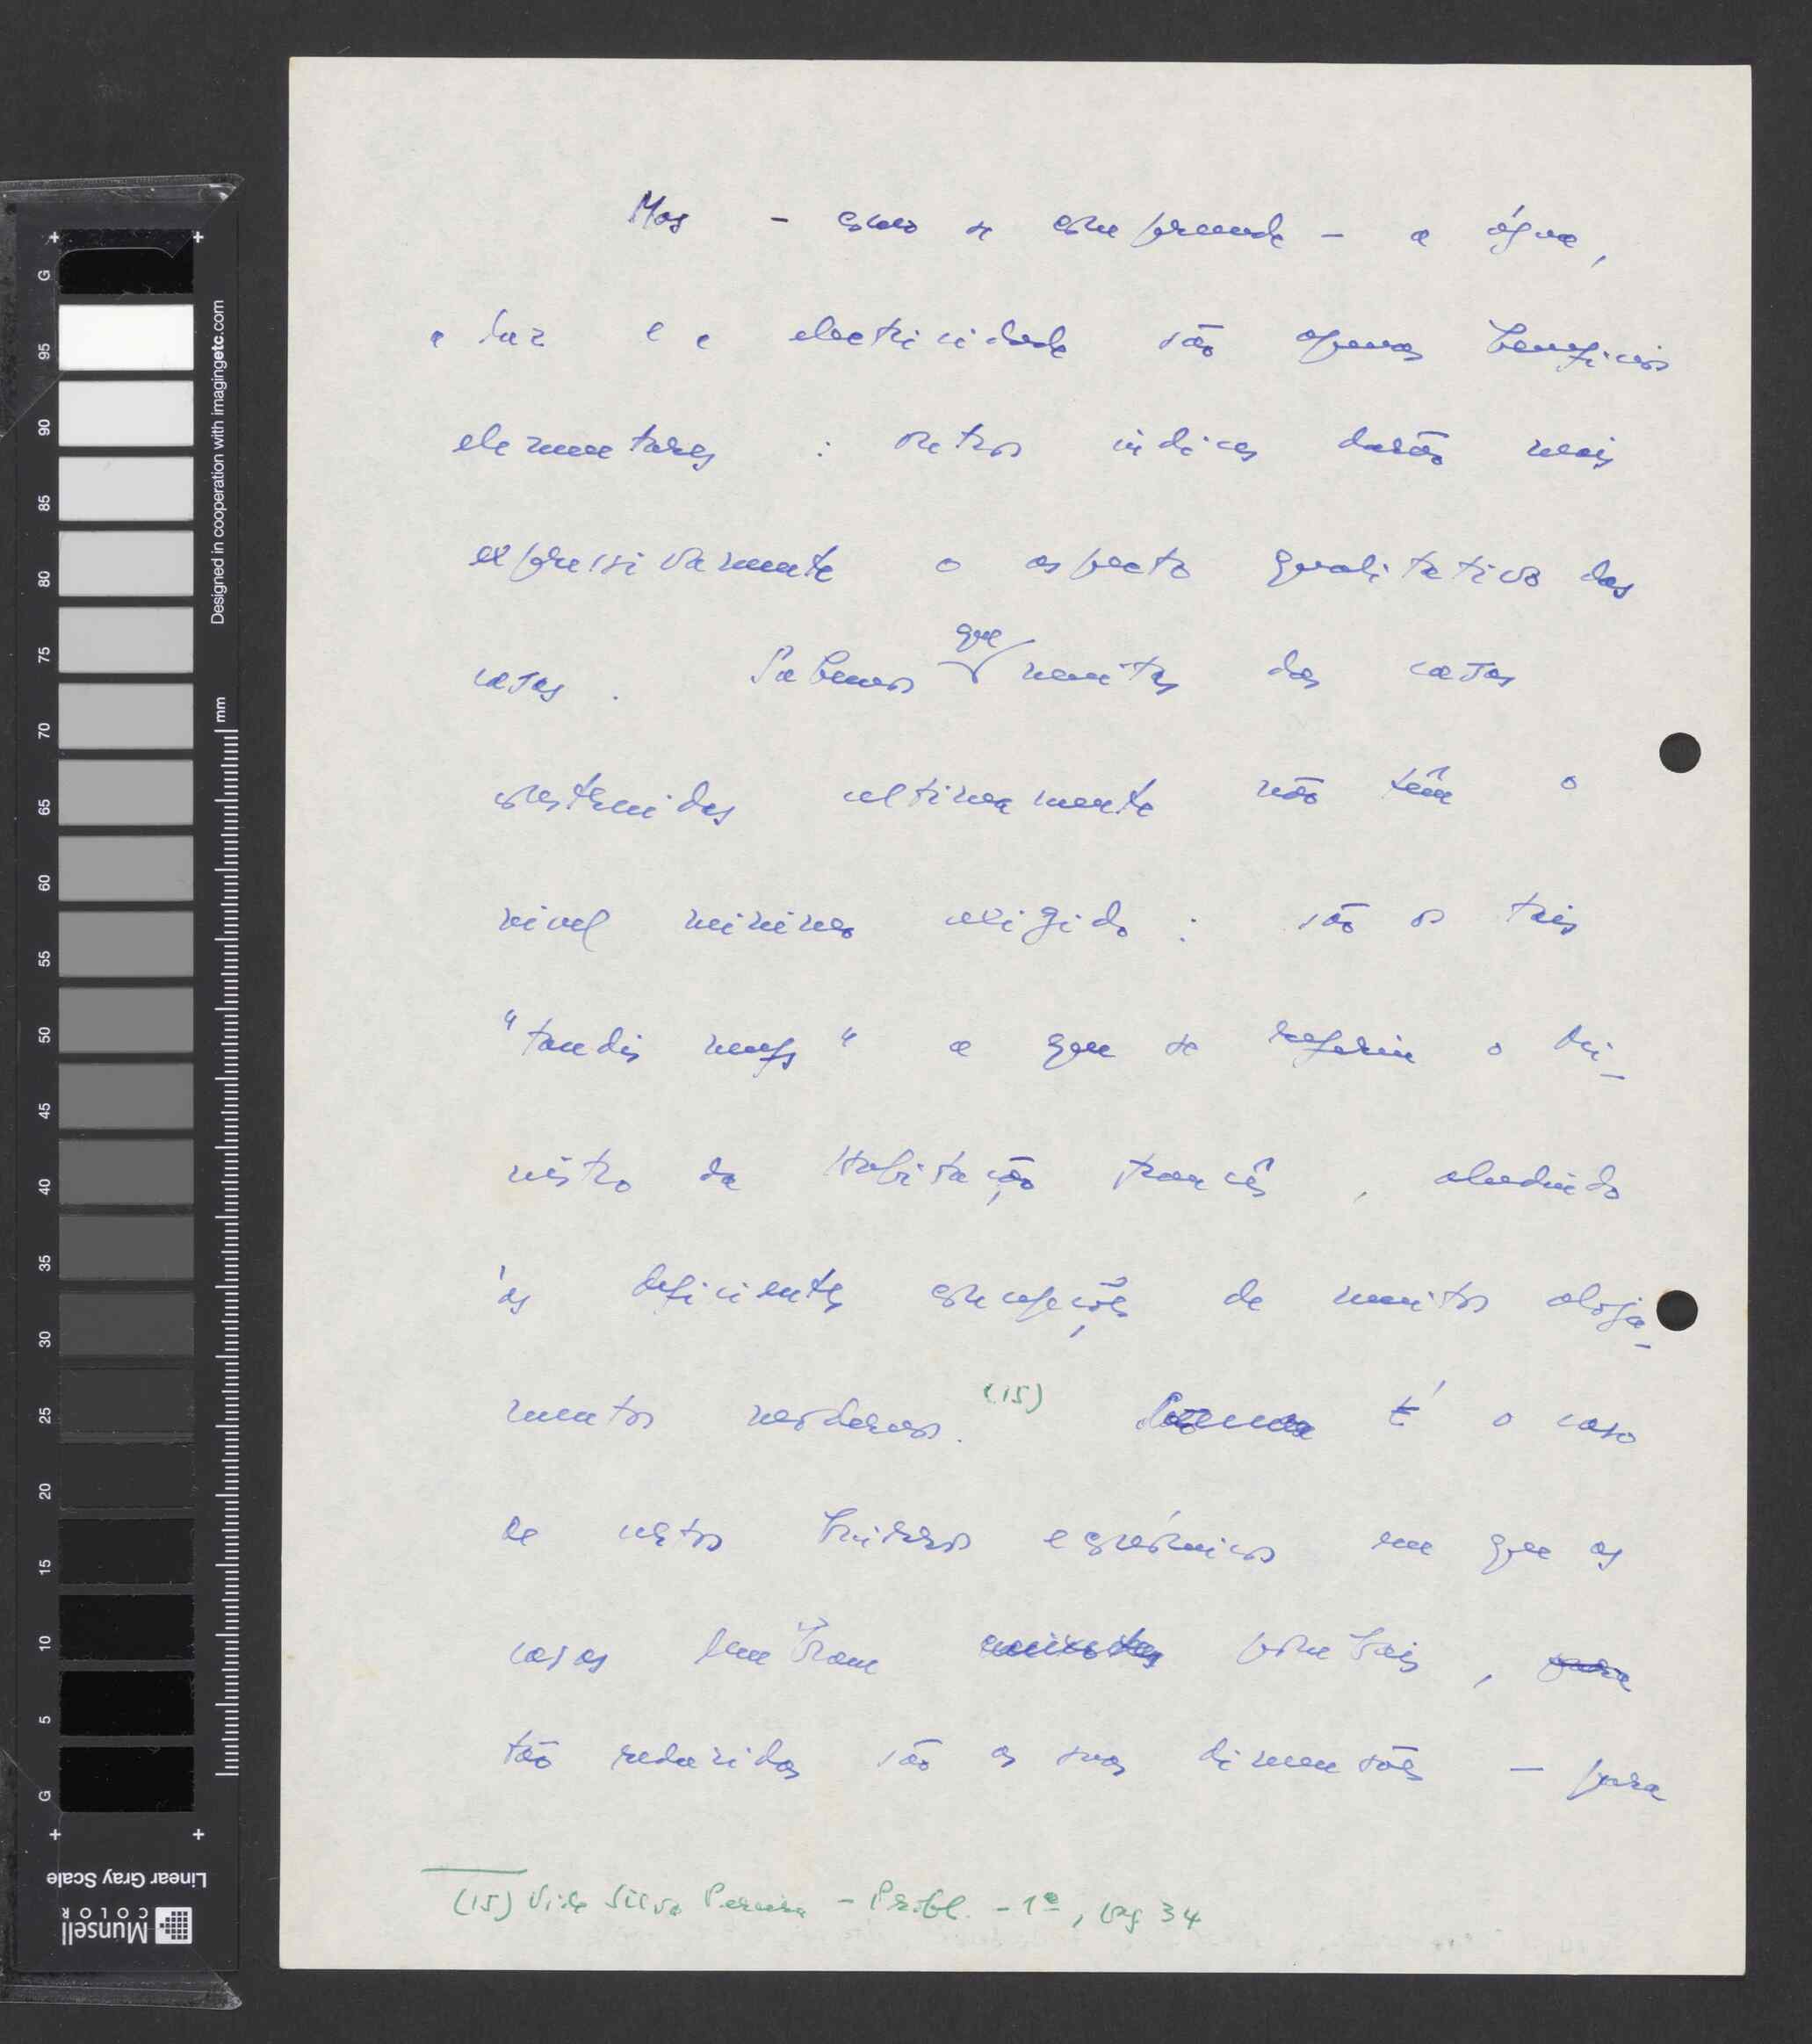 Mas - como se compreende - a água,
a luz e a electricidade são apenas benefícios
elementares : outros indices darão mais
expressivamente o aspecto qualitativo das
casas . Sabemos que muitas das casas
construidas ultimamente não têm o
nivel minimo exigido : são os tais
"taudis neufs" a que se referiu o Mi-
nistro da Habitação francês , aludindo
às deficientes concepções de muitos aloja-
mentos modernos. (15) É o caso
de certos bairros económicos em que as
casas lembram pombais , para
tão reduzidas são as suas dimensões — para
(15) Vide Silva Pereira - Probl. - 1º, pag 34
G 95 90 85 80 75 70 65 60 55 50 45 40 35 30 25 20 15 10 5 G
Designed in cooperation with imagingetc.com
mm
Linear Gray Scale
Munsell
COLOR